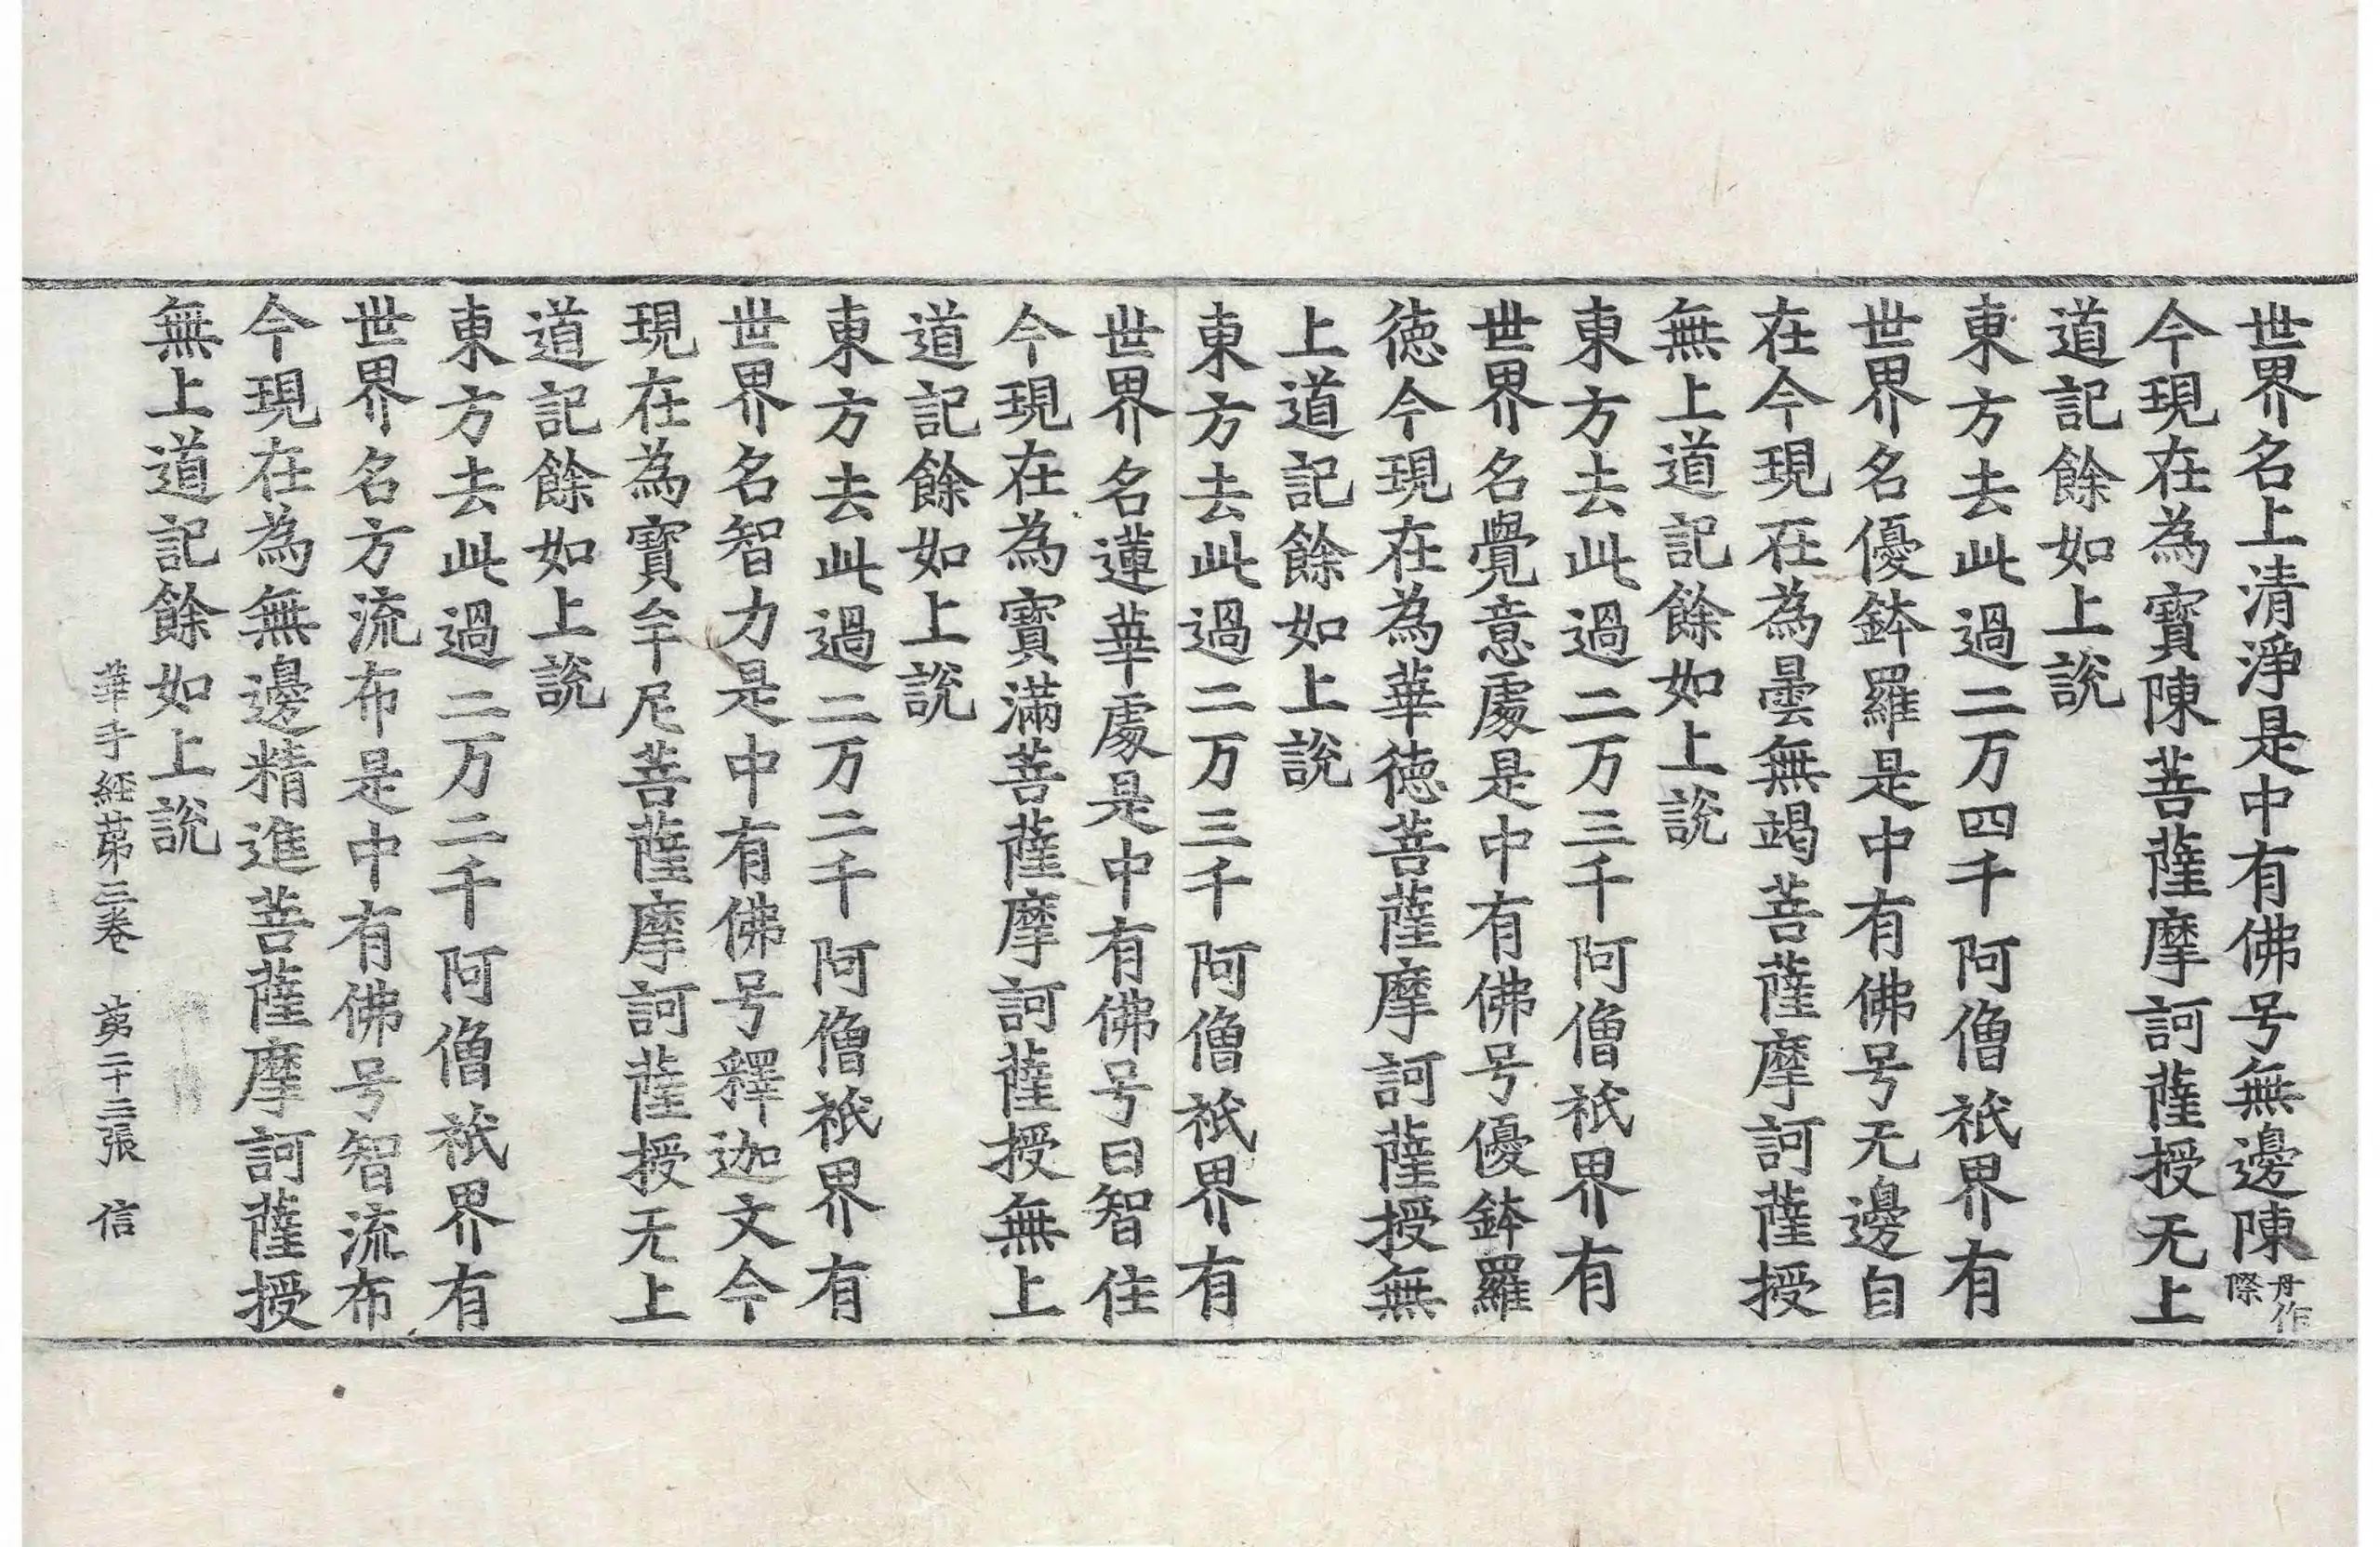 世界名上清淨是中有佛号無邊陳丹作際
今現在為寶陳菩薩摩訶薩授无上
道記餘如上說
東方去此過二万四千阿僧祇界有
世界名優鉢羅是中有佛号无邊自
在今現在為曇無竭菩薩摩訶薩授
無上道記餘如上說
東方去此過二万三千阿僧祇界有
世界名覺意處是中有佛号優鉢羅
德今現在為華德菩薩摩訶薩授無
上道記餘如上說
東方去此過二万三千阿僧祇界有
世界名蓮華處是中有佛号曰智住
今現在為寶滿菩薩摩訶薩授無上
道記餘如上說
東方去此過二万二千阿僧祇界有
世界名智力是中有佛号釋迦文今
現在為寶牟尼菩薩摩訶薩授无上
道記餘如上說
東方去此過二万二千阿僧祇界有
世界名方流布是中有佛号智流布
今現在為無邊精進菩薩摩訶薩授
無上道記餘如上說
華手經第三卷 第二十二張 信